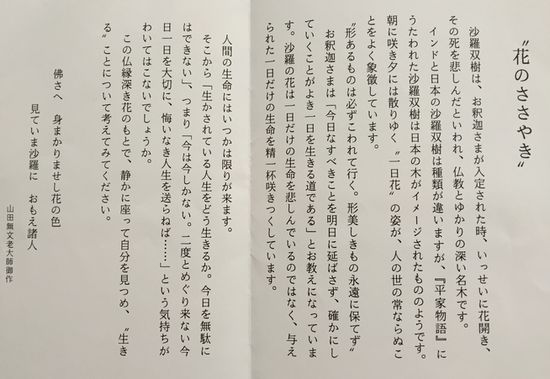 〝花のささやき〟
沙羅双樹は、お釈迦さまが入定された時、いっせいに花開き、
その死を悲しんだといわれ、仏教とゆかりの深い名木です。
インドと日本の沙羅双樹は種類が違いますが、『平家物語』に
うたわれた沙羅双樹は日本の木がイメージされたもののようです。
朝に咲き夕には散りゆく〝一日花〟の姿が、人の世の常ならぬこ
とをよく象徴しています。
〝形あるものは必ずこわれて行く。形美しきもの永遠に保てず〟
お釈迦さまは「今日なすべきことを明日に延ばさず、確かにし
ていくことがよき一日を生きる道である」とお教えになっていま
す。沙羅の花は一日だけの生命を悲しんでいるのではなく、与え
られた一日だけの生命を精一杯咲きつくしています。
人間の生命にはいつかは限りが来ます。
そこから「生かされている人生をどう生きるか。今日を無駄に
はできない」、つまり「今は今しかない。二度とめぐり来ない今
日一日を大切に、悔いなき人生を送らねば……」という気持ちが
わいてはこないでしょうか。
この仏縁深き花のもとで、静かに座って自分を見つめ、〝生き
る〟ことについて考えてみてください。
佛さへ 身まかりませし花の色
見ていま沙羅に おもえ諸人
山田無文老大師御作